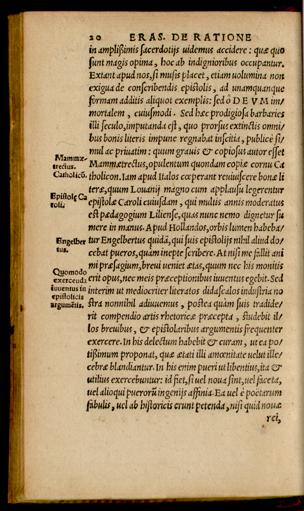 20 ERAS. DE RATIONE
in amplißimis sacerdotijs uidemus accidere: quæ quo
sunt magis opima, hoc ab indignioribus occupantur.
Extant apud nos, si musis placet, etiam uolumina non
exigua de conscribendis epistolis, ad unamquamque
formam additis aliquot exemplis: sed ô DEVM im/
mortalem, cuiusmodi. Sed hæc prodigiosa barbaries
illi seculo, imputanda est, quo prorsus extinctis omni/
bus bonis literis impune regnabat inscitia, publicè si/
mul ac priuatim: quum grauis & copiosus autor esset
Mammæ
trectus.
Catholicō.
Mammætrectus, opulentum quondam copiæ cornu Ca
tholicon. Iam apud Italos cœperant reuiuiscere bonæ li
teræ, quum Louanij magno cum applausu legerentur
Epistolę Ca
roli.
epistolæ Caroli cuiusdam, qui multis annis moderatus
est pædagogium Liliense, quas nunc nemo dignetur su
mere in manus. Apud Hollandos, orbis lumen habeba/
Engelber
tus.
tur Engelbertus quidā, qui suis epistolijs nihil aliud do/
cebat pueros, quàm ineptè scribere. At nisi me fallit ani
mi præsagium, breui ueniet ætas, quum nec his monitis
Quomodo
exercenda
iuuentus in
epistolicis
argumētis.
erit opus, nec meis præceptionibus iuuentus egebit. Sed
interim ut mediocriter literatos didascalos industria no
stra nonnihil adiuuemus, postea quàm suis tradide/
rit compendio artis rhetoricæ præcepta, studebit il/
los breuibus, & epistolaribus argumentis frequenter
exercere. In his delectum habebit & curam, ut ea po/
tißimum proponat, quæ ætati illi amœnitate uelut ille/
cebræ blandiantur. In his enim pueri ut libentius, ita &
utilius exercebuntur: id fiet, si uel noua sint, uel faceta,
uel alioqui puerorū ingenijs affinia. Ea uel è poëtarum
fabulis, uel ab historicis erunt petenda, nisi quid nouæ
rei,